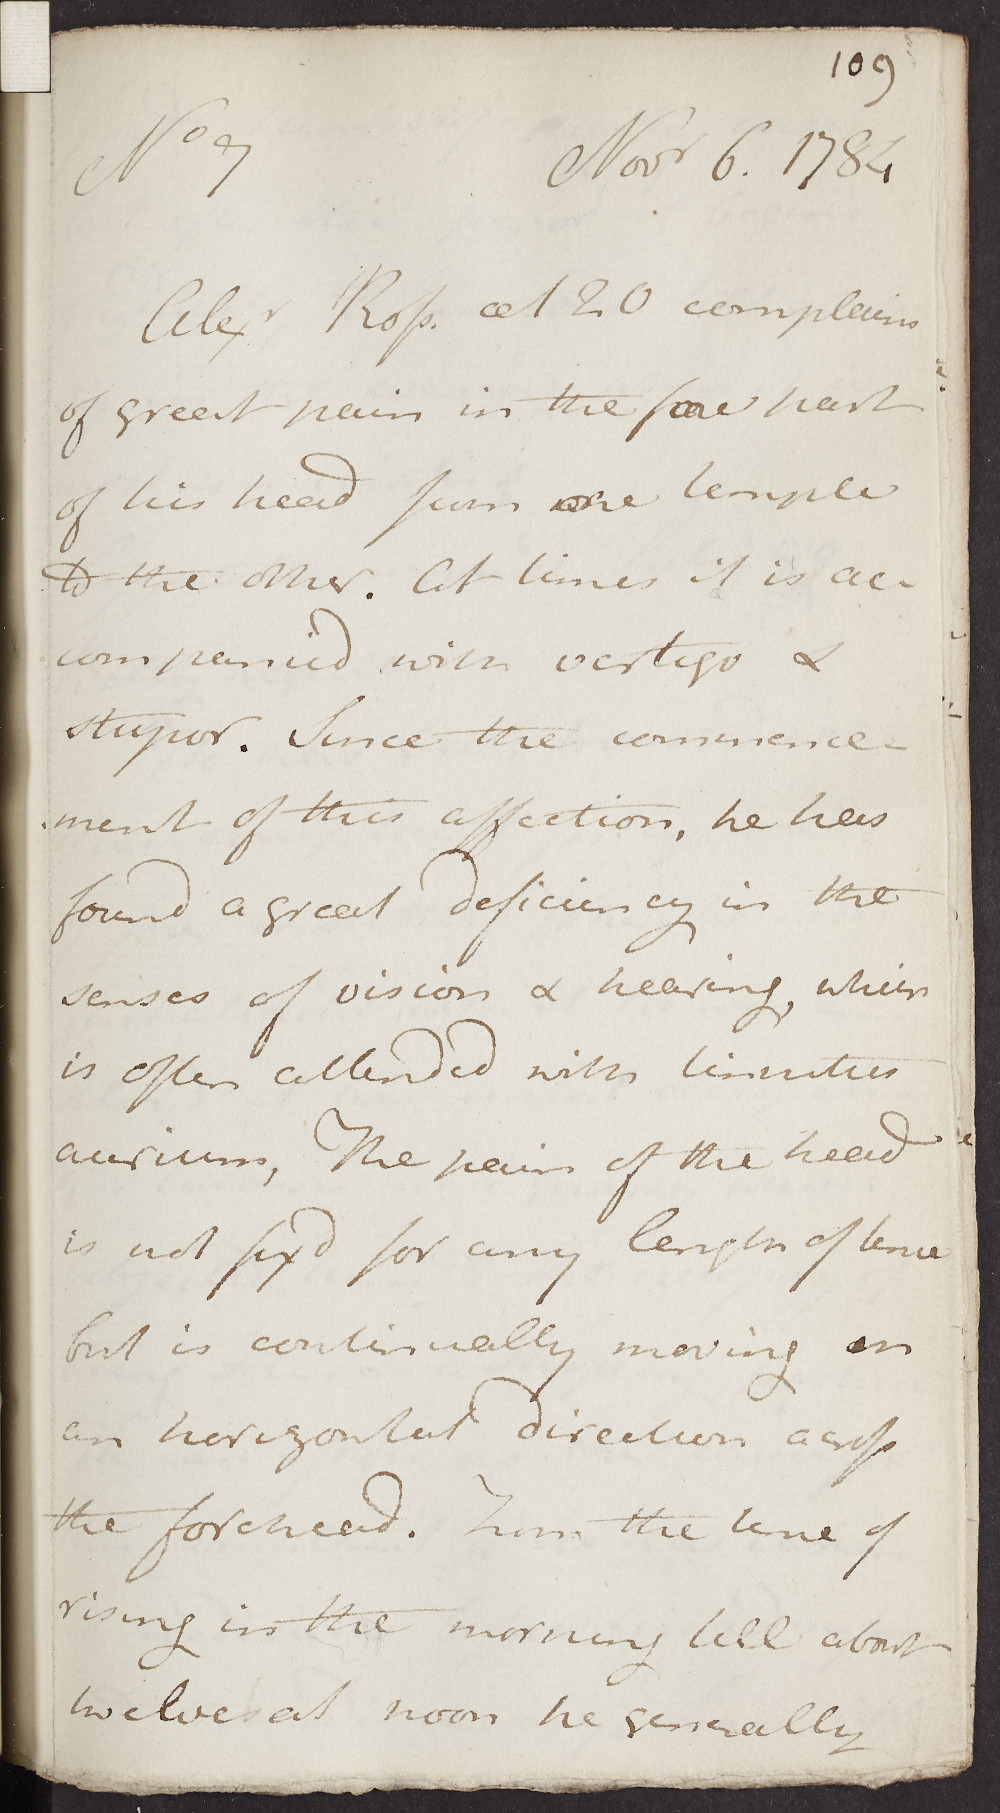 109
No 7 Novr 6. 1784
Alexr Ross. aet 20 complains
of great pain in the fore part
of his head from one temple
to the other. At times it is ac-
companied with vertigo &
stupor. Since the commence-
ment of this affection, he has
found a great deficiency in the
senses of vision & hearing, which
is often attended with tinnitus
aurium, The pain of the head
is not fixd for any length of time
but is continually moving in
an horizontal direction across
the forehead. From the time of
rising in the morning till about
twelve at noon he generally